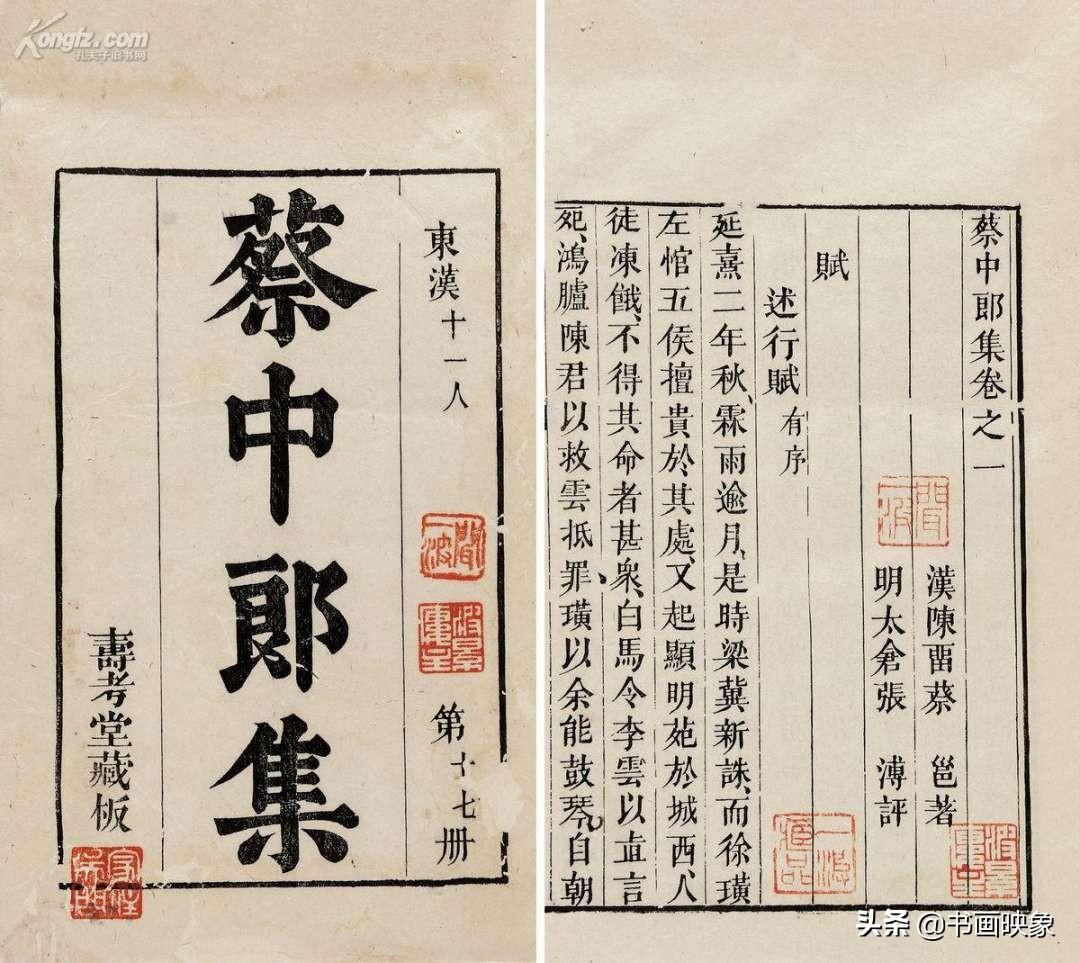 Kongfz.com
孔夫子旧书网
東漢十一人
第十七册
蔡中郎集
壽考堂藏板
蔡中郎集卷之一
漢陳畱蔡　邕著
明太倉張　溥評
賦
述行賦有序
延熹二年秋、霖雨逾月、是時梁冀新誅、而徐璜
左悺五侯擅貴於其處、又起顯明苑於城西、人
徒凍餓、不得其命者甚衆、白馬令李雲以直言
死、鴻臚陳君以救雲抵罪、璜以余能鼓琴、自朝
头条 @书画映象